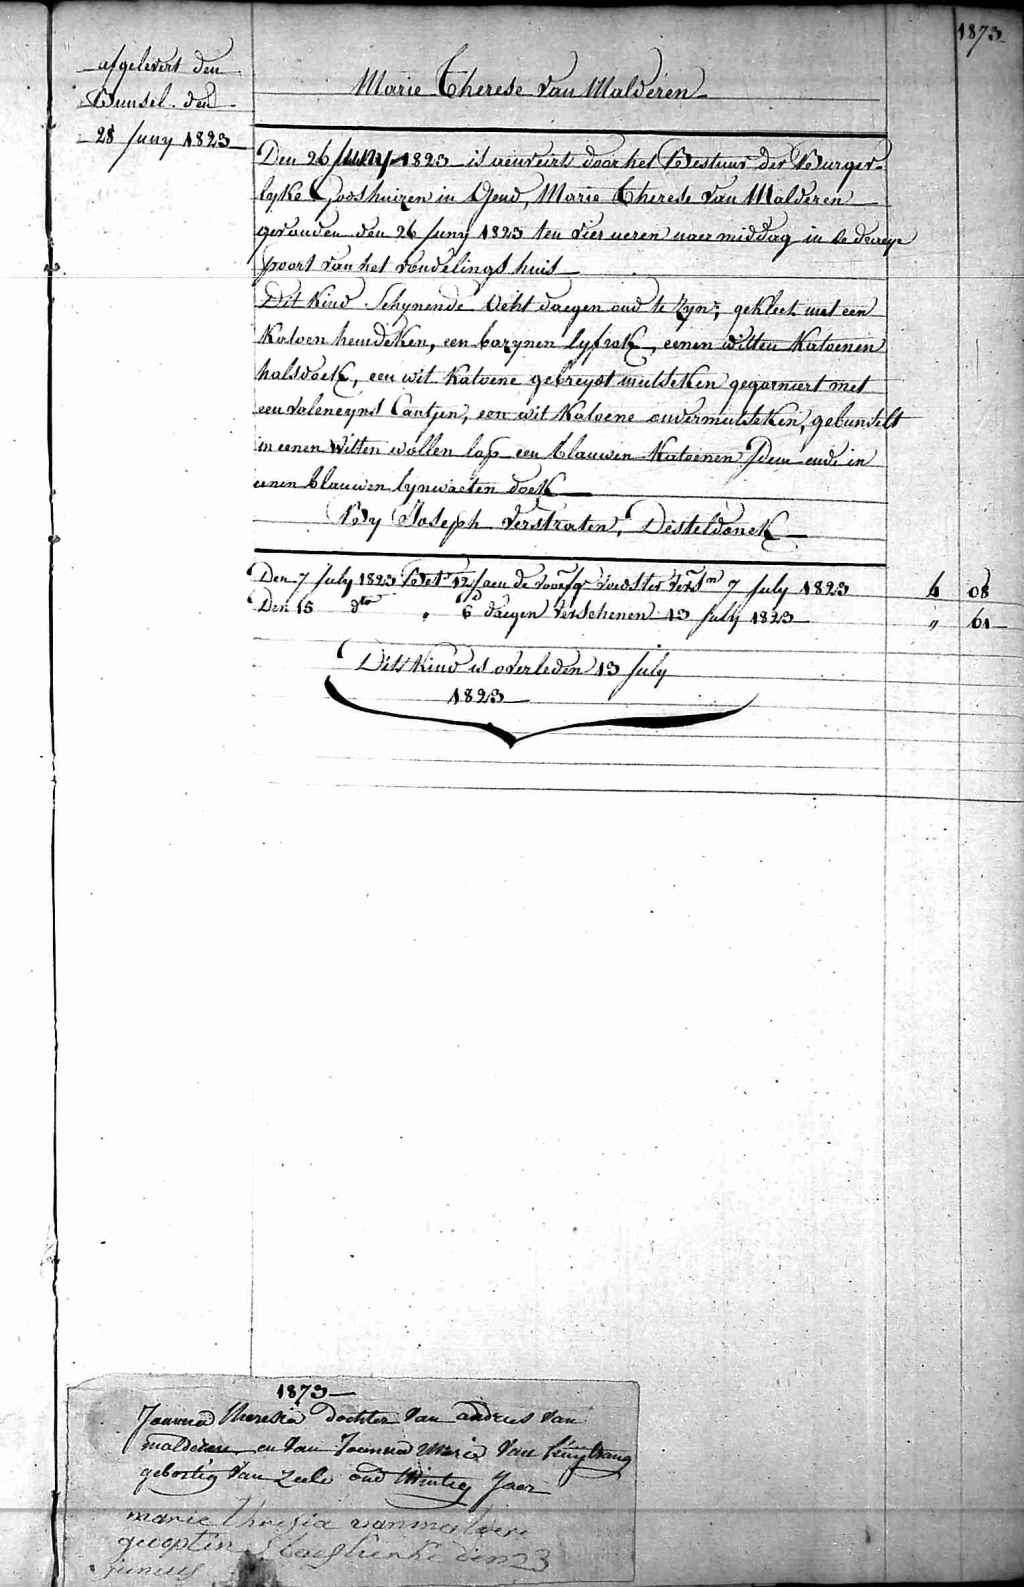 1873
afgelevert den
Bunsel den
28 Juny 1823
Marie Therese Van Malderen
Den 26 Juny 1823 is door het Bestuur der Burger-
lyke Godshuizen in Gend, Marie Therese Van Malderen
gevonden den 26 Juny 1823 ten vier ueren naer middag in de
poort van het vondelings huis
Dit Kind Schynende acht daegen oud te Zyn, gekleet met een
Katoen hemdeken, een bazynen lyfrok, eenen witten Katoenen
halsdoek, een wit Katoene gebreyot mutseken gegarniert met
een valencyns Cantjen, een wit Katoene ondermutseken, gebunselt
in eenen Witten wollen lap een blauwen Katoenen Idem ende in
eenen blauwen lynwaeten doek
By Joseph Verstraten, Desteldonck
Den 7 July 1823 de Voedster 7 July 1823 4 08
Den 15 dto " 6 daegen verschenen 13 July 1823 " 61
Dit Kind is overleden 13 July
1823
1873
Joanna Theresia dochter van andries van
malderen en van Joanna Maria Van
geboortig van Zele oud Jaer
marie thresia vanmaldere
den 23
junius